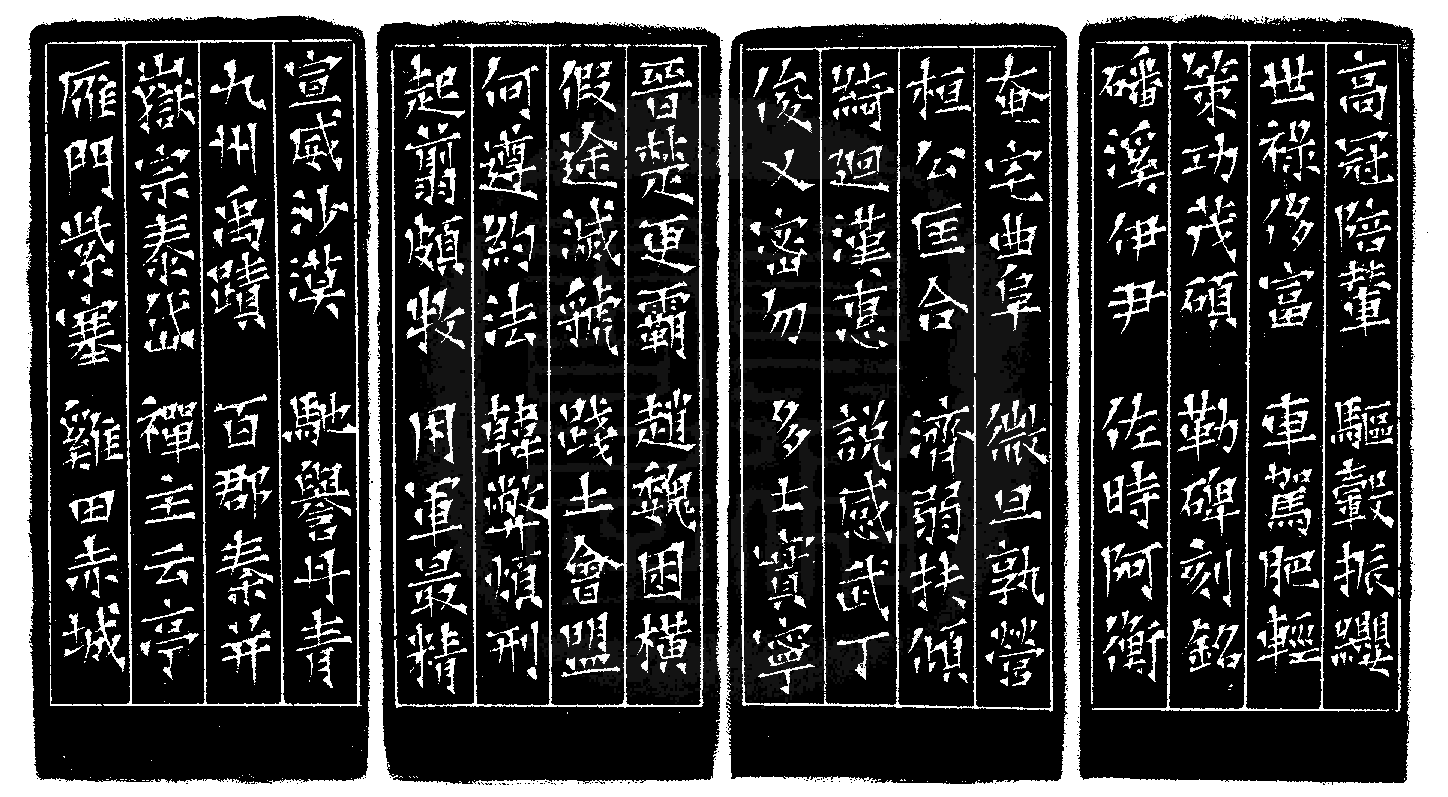 高冠陪輦 驅轂振纓
世祿侈富 車駕肥輕
策功茂碩 勒碑刻銘
磻溪伊尹 佐時阿衡
奄宅曲阜 微旦孰營
桓公匡合 濟弱扶傾
綺迴漢惠 說感武丁
俊乂密勿 多士實寧
晉楚更霸 趙魏困橫
假途滅虢 踐土會盟
何遵約法 韓弊煩刑
起翦頗牧 用軍最精
宣威沙漠 馳譽丹青
九州禹蹟 百郡秦并
嶽宗泰岱 禪主云亭
雁門紫塞 雞田赤城